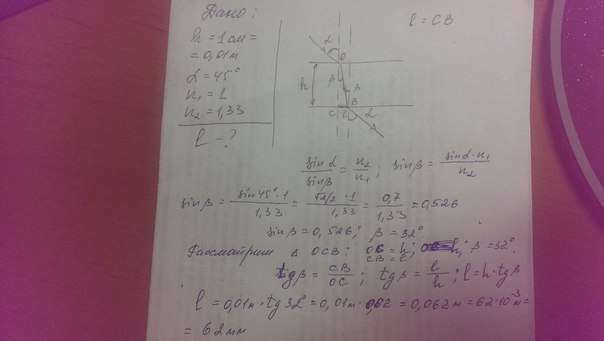 Дано:
h = 1 см =
= 0,01 м
α = 45°
n₁ = 1
n₂ = 1,33
l - ?
l = CB
α
O
β
h
β
B
C l
α
A
sinα/sinβ = n₂/n₁ ; sinβ = sinα·n₁/n₂
sinβ = sin45°·1/1,33 = √2/2·1/1,33 = 0,7/1,33 = 0,526
sinβ = 0,526; β = 32°
Рассмотрим Δ OCB: OC = h; β = 32°.
CB = l
tgβ = CB/OC ; tgβ = l/h ; l = h·tgβ
l = 0,01м·tg32° = 0,01м·0,62 = 0,062м = 62·10⁻³м =
= 62мм